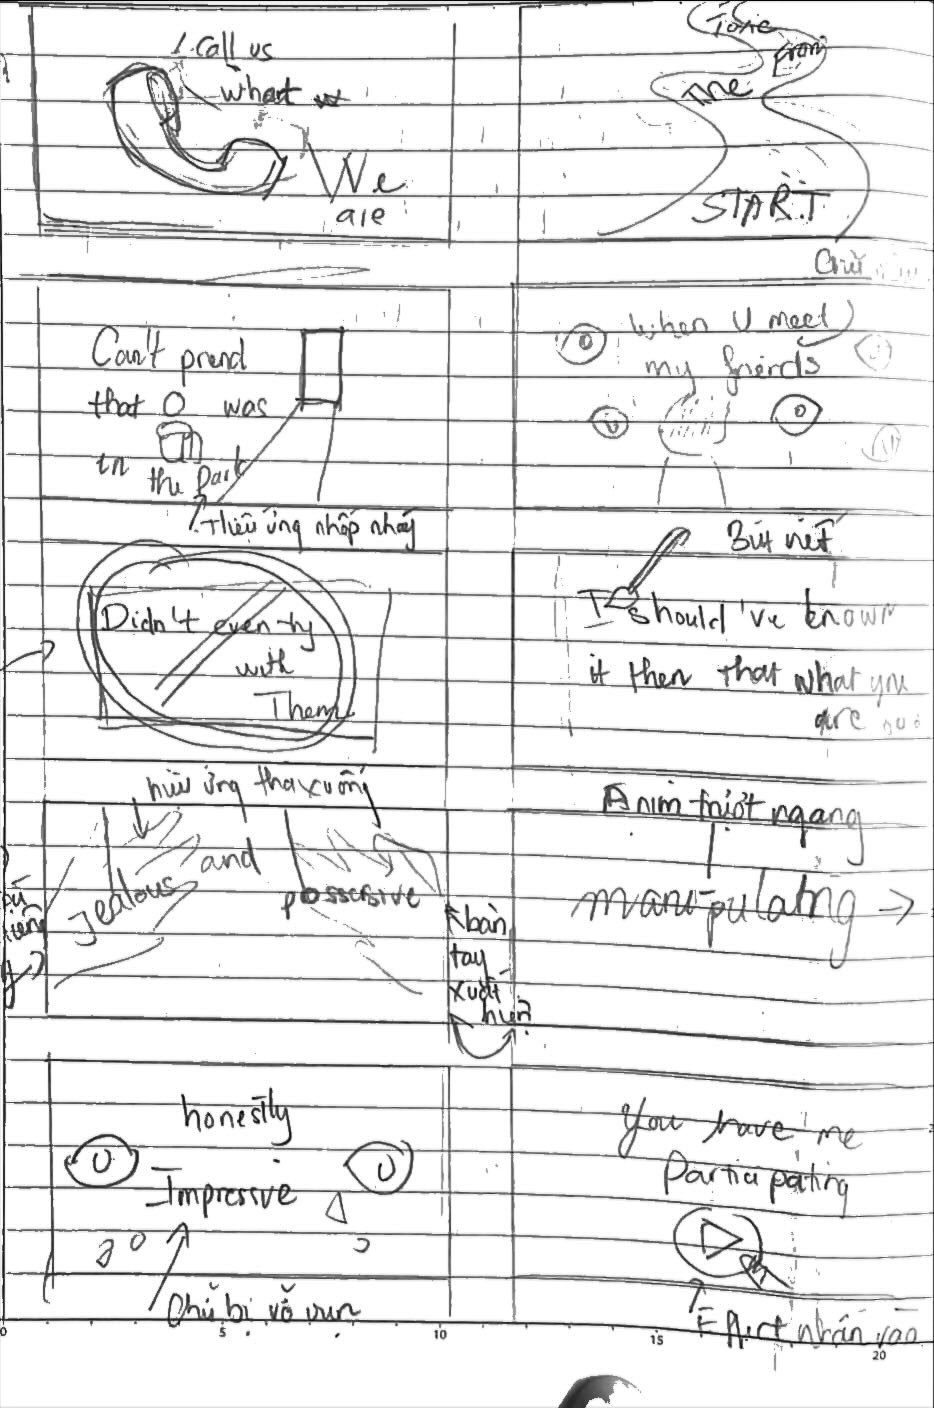 I call us
what
We
are
Tonic
from
The
START
Chữ
Can't prend
that O was
in the Park
Hiệu ứng nhấp nháy
When U meet
my friends
Didn't even try
with
Them
Bút viết
I should've known
it then that what you
are
hiệu ứng thả xuống
Jealous and
possersive
bàn
tay
xuất
hiện
Anim trượt ngang
manipulating
honestly
Impressive
Chữ bị vỡ vụn
You have me
Participating
Effect nhấn vào
0 5 10 15 20